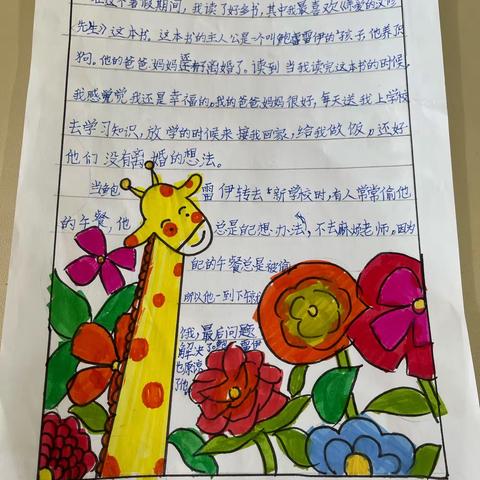 在这个暑假期间，我读了好多书，其中我最喜欢《亲爱的汉修
先生》这本书，这本书的主人公是一个叫鲍雷伊的孩子他养了
狗。他的爸爸妈妈还离婚了。读到 当我读完这本书的时候，
我感觉我还是幸福的。我的爸爸妈妈很好，每天送我上学校
去学习知识，放学的时候来接我回家，给我做饭，还好
他们没有离婚的想法。
当鲍 雷伊转去新学校时，有人常常偷他
的午餐，他 总是自己想办法，不去麻烦老师。因为
自己的午餐总是被偷
所以他一到下午
饿，最后问题
解决了 雷伊
也原谅
了他